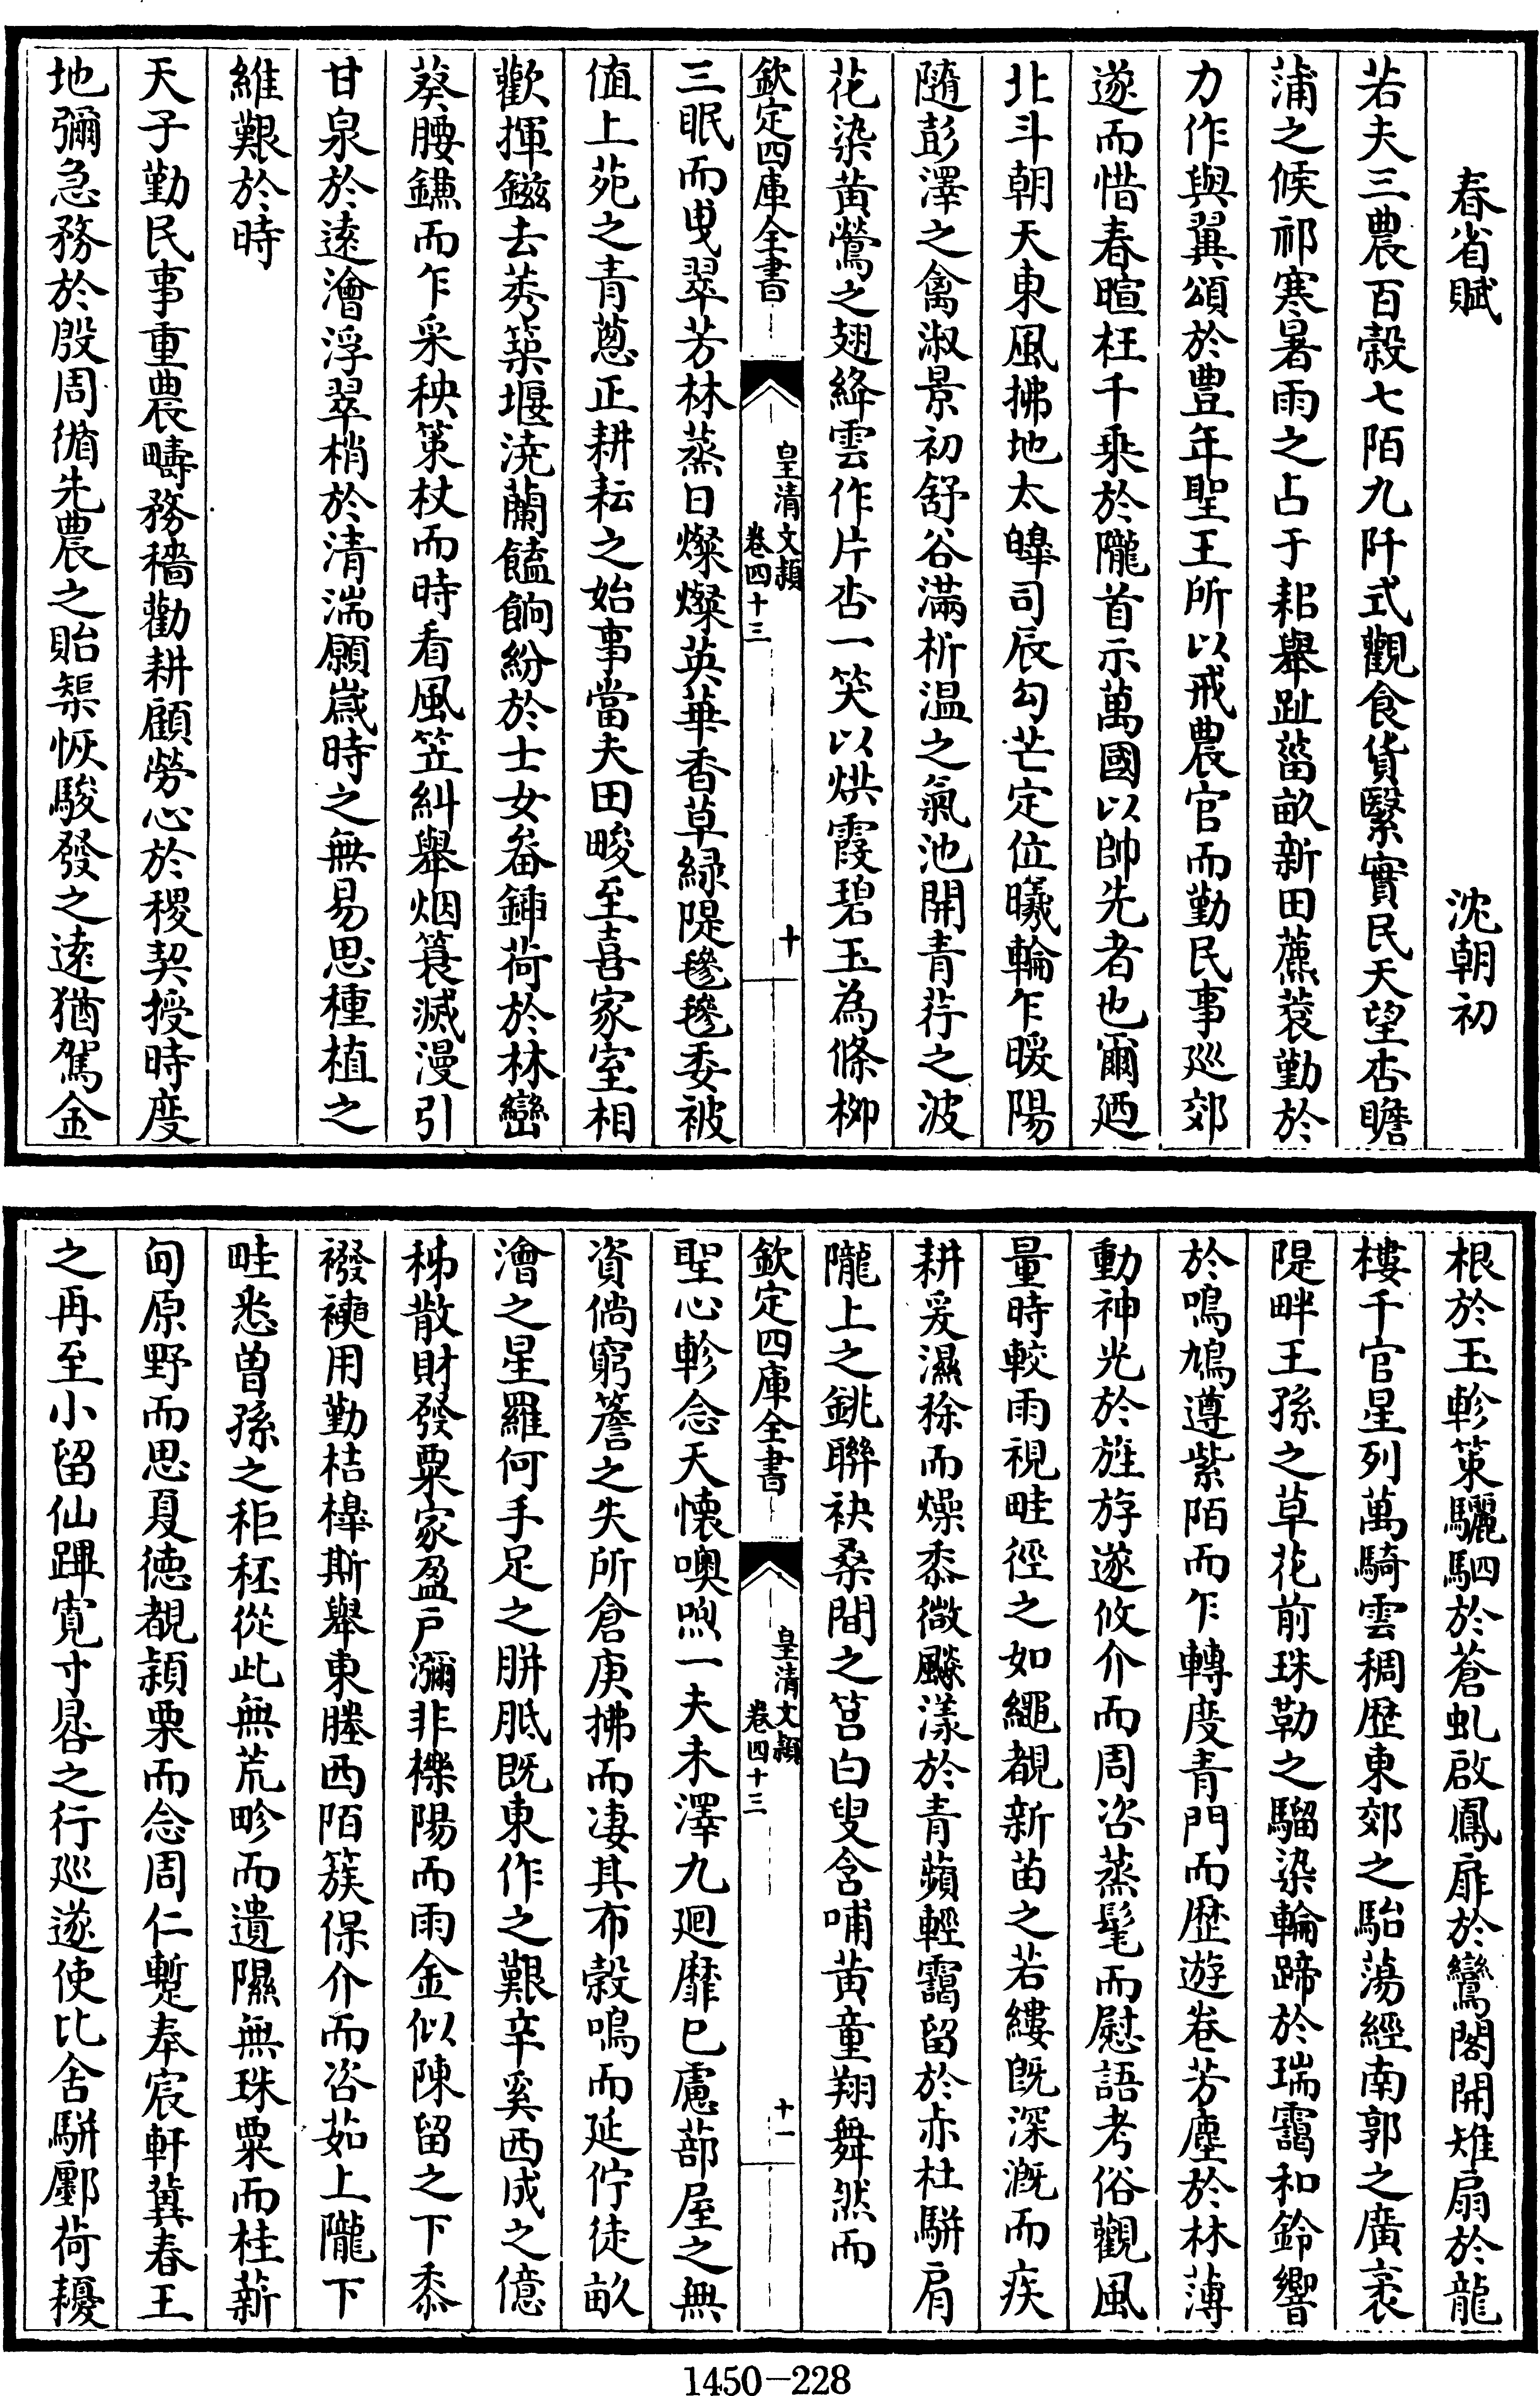 春省賦　沈朝初
若夫三農百穀七陌九阡式觀食貨繄實民天望杏瞻
蒲之候祁寒暑雨之占于耜舉趾菑畝新田藨蓘勤於
力作與翼頌於豊年聖王所以戒農官而勤民事廵郊
遂而惜春暄枉千乗於隴首示萬國以帥先者也爾廼
北斗朝天東風拂地太皥司辰勾芒定位曦輪乍暖陽
隨彭澤之禽淑景初舒谷滿析温之氣池開青荇之波
花染黄鶯之翅絳雲作片杏一笑以烘霞碧玉為條柳
欽定四庫全書
皇清文穎
卷四十三
十
三眠而曵翠芳林蒸日燦燦英華香草緑隄毿毿委被
值上苑之青蔥正耕耘之始事當夫田畯至喜家室相
歡揮鎡去莠築堰澆蘭饁餉紛於士女畚鍤荷於林巒
葵腰鎌而乍采秧策杖而時看風笠糾舉烟簑滅漫引
甘泉於逺澮浮翠梢於清湍願嵗時之無易思種植之
維艱於時
天子勤民事重農疇務穡勸耕顧勞心於稷契授時度
地彌急務於殷周循先農之貽榘恢駿發之逺猶駕金
根於玉軫策驪駟於蒼虬啟鳳扉於鸞閣開雉扇於龍
樓千官星列萬騎雲稠歴東郊之駘蕩經南郭之廣袤
隄畔王孫之草花前珠勒之騮染輪蹄於瑞靄和鈴響
於鳴鳩遵紫陌而乍轉度青門而歴遊巻芳塵於林薄
動神光於旌斿遂攸介而周咨蒸髦而慰語考俗觀風
量時較雨視畦徑之如繩覩新苗之若縷旣深溉而疾
耕爰濕稌而燥黍微颸漾於青蘋輕靄留於赤杜駢肩
隴上之銚聯袂桑間之筥白叟含哺黄童翔舞然而
欽定四庫全書
皇清文穎
卷四十三
十一
聖心軫念天懷噢咻一夫未澤九廻靡已慮蔀屋之無
資倘窮簷之失所倉庚拂而凄其布穀鳴而延佇徒畝
澮之星羅何手足之胼胝既東作之艱辛奚西成之億
秭散財發粟家盈戶瀰非櫟陽而雨金似陳留之下黍
襏襫用勤桔槹斯舉東塍西陌簇保介而咨茹上隴下
畦悉曽孫之秬秠從此無荒畛而遺隰無珠粟而桂薪
甸原野而思夏徳覩穎栗而念周仁蹔奉宸軒冀春王
之再至小留仙蹕寛寸晷之行廵遂使比舍駢酆荷耰
1450-228